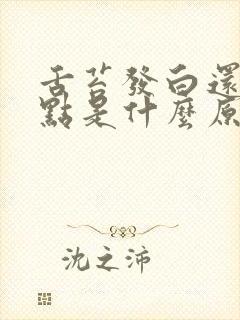 舌苔發白還
點是什麼原
沈之沛